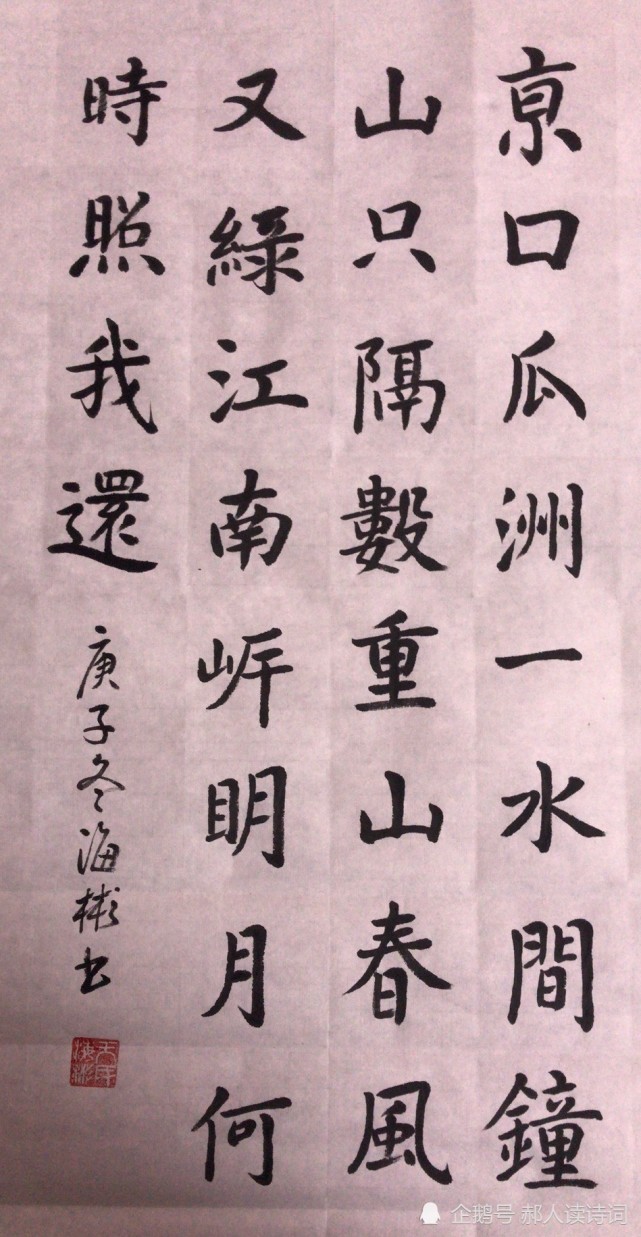 京口瓜洲一水間鐘
山只隔數重山春風
又綠江南岸明月何
時照我還
庚子冬海彬书
企鹅号 郝人读诗词